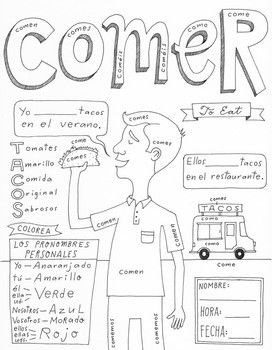 comen
come
come
COMER
Yo ______ tacos
en el verano.
To Eat
Tomates
Amarillo
Comida
Original
Sabrosos
come
comes
comes
comen
Ellos ______ tacos
en el restaurante.
TACOS
como
COLOREA
LOS PRONOMBRES
PERSONALES
Yo — Anaranjado
tú — Amarillo
él
ella
ud. — Verde
Nosotros — Azul
Vosotros — Morado
ellos
ellas
uds. — Rojo
comen
comen
comemos
comemos
come
NOMBRE:
HORA:
FECHA: